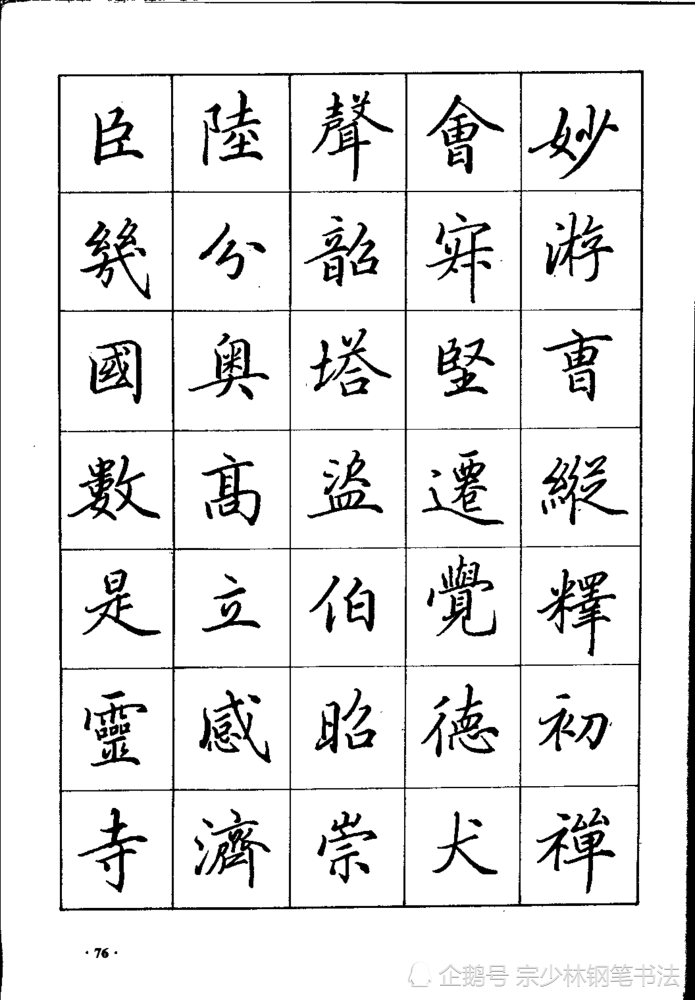 妙游曺縱釋初禪
會寂堅遷覺德犬
聲韶塔盜伯昭崇
陸分奥髙立感濟
臣幾國數是靈寺
·76·
企鹅号 宗少林钢笔书法